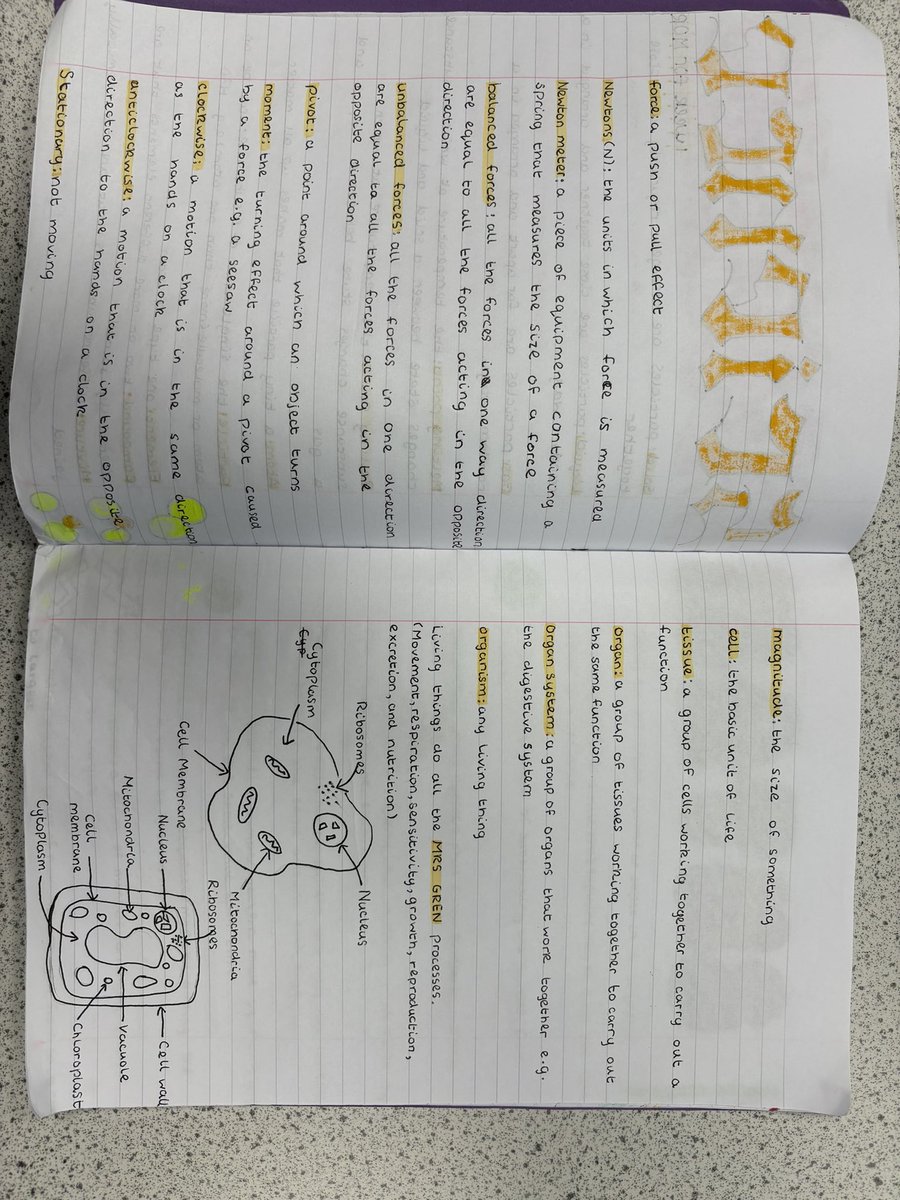 force: a push or pull effect
Newtons (N): the units in which force is measured
Newton meter: a piece of equipment containing a
spring that measures the size of a force
balanced forces: all the forces in one way direction
are equal to all the forces acting in the opposite
direction
unbalanced forces: all the forces in one direction
are equal to all the forces acting in the
opposite direction
pivot: a point around which an object turns
moment: the turning effect around a pivot caused
by a force e.g. a seesaw
clockwise: a motion that is in the same direction
as the hands on a clock
anticlockwise: a motion that is in the opposite
direction to the hands on a clock
Stationary: not moving
magnitude: the size of something
cell: the basic unit of life
tissue: a group of cells working together to carry out a
function
Organ: a group of tissues working together to carry out
the same function
Organ system: a group of organs that work together e.g.
the digestive system
organism: any living thing
Living things do all the MRS GREN processes.
(Movement, respiration, sensitivity, growth, reproduction,
excretion, and nutrition)
Ribosomes
Nucleus
Cytoplasm
Mitochondria
Cell Membrane
Ribosomes
Nucleus
Cell wall
Mitochondria
Vacuole
Cell
membrane
Chloroplast
Cytoplasm